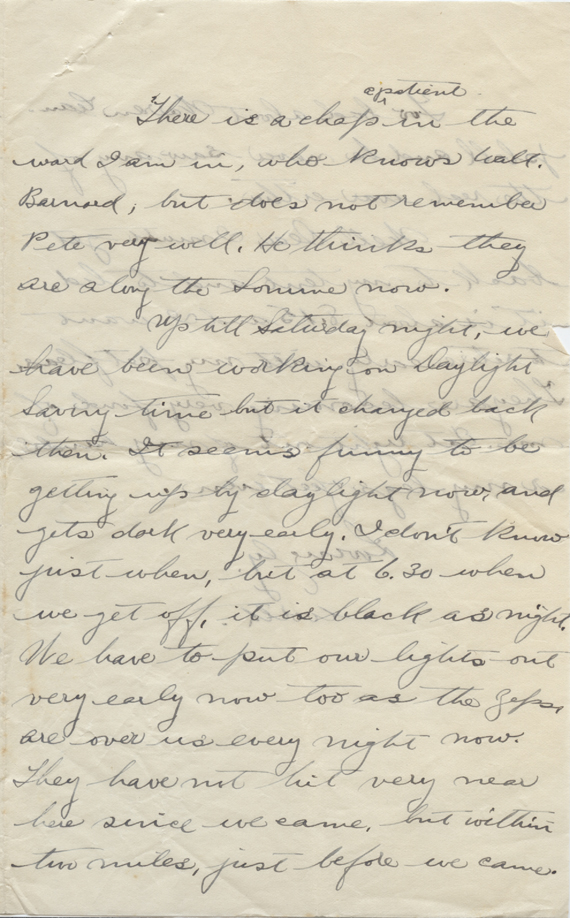 a patient
There is a chap in the
ward I am in, who knows Walt.
Barnard, but does not remember
Pete very well. He thinks they
are along the Somme now.
Up till Saturday night, we
have been working on Daylight
Saving time but it changed back
then. It seems funny to be
getting up by daylight now, and
gets dark very early. I don't know
just when, but at 6.30 when
we get off, it is black as night.
We have to put our lights out
very early now too as the Zepps
are over us every night now.
They have not hit very near
here since we came, but within
two miles, just before we came.